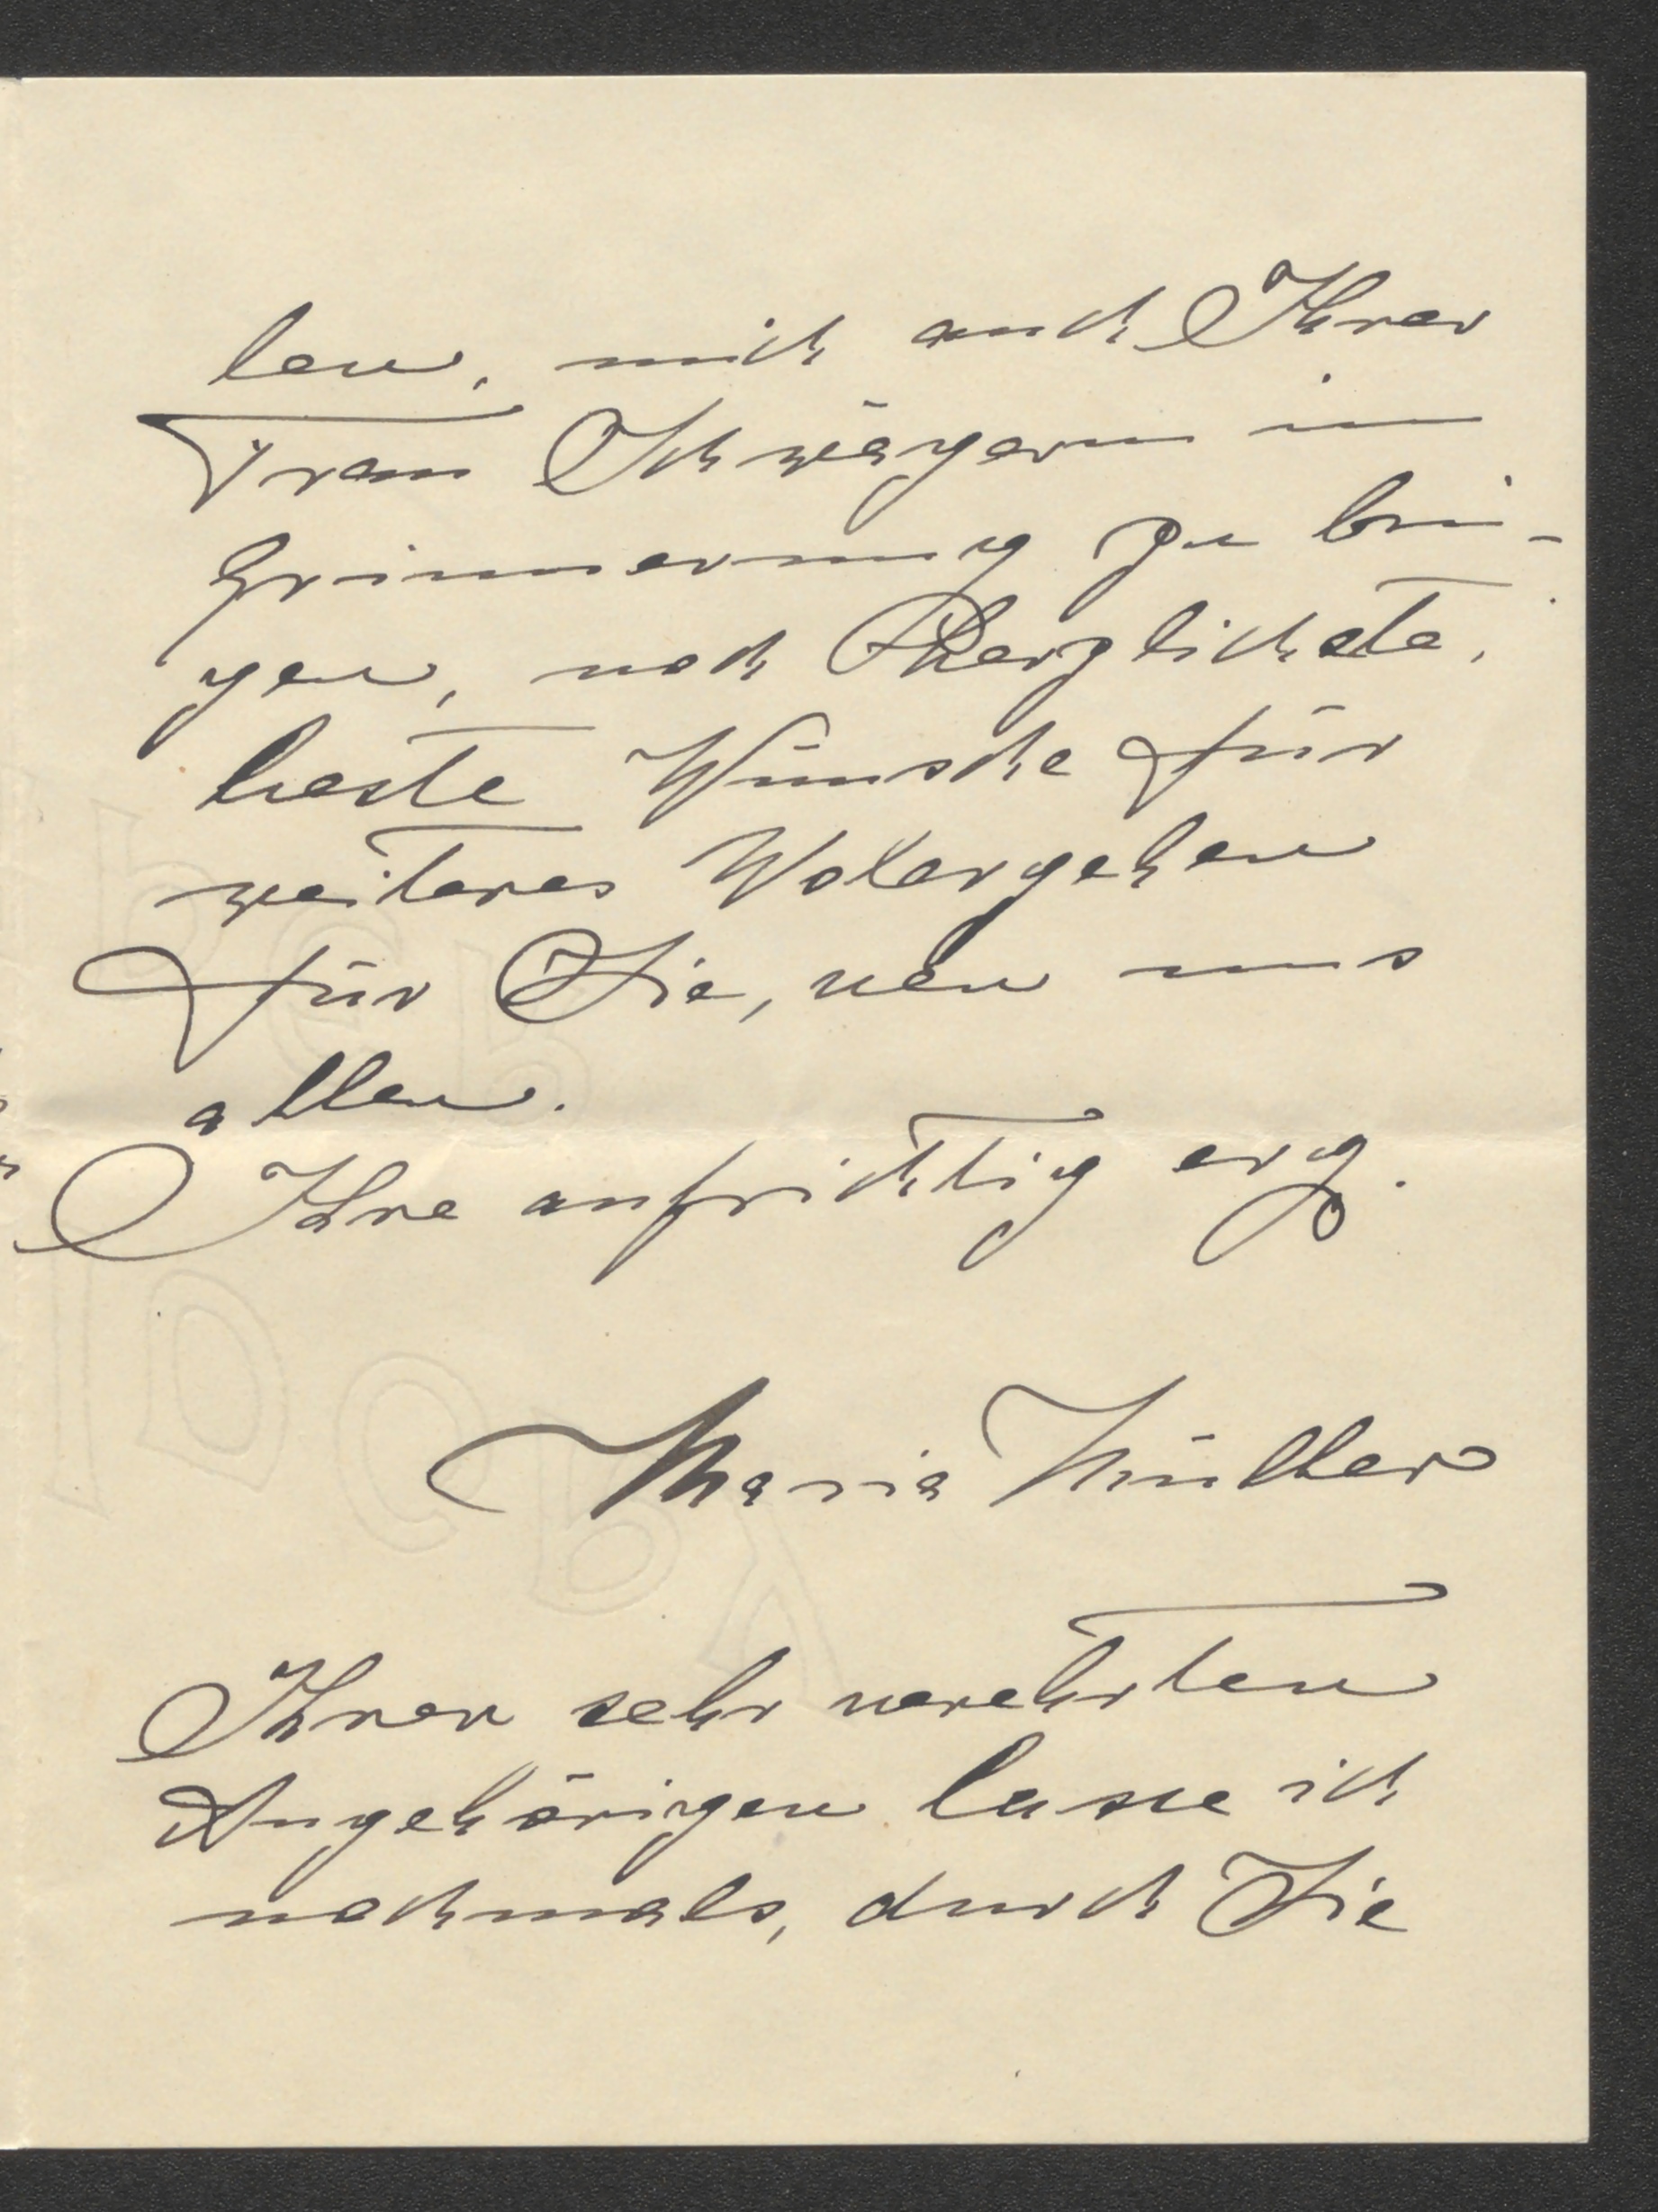 len, mich auch Ihrer
Frau Schwägerin in
Erinnerung zu brin-
gen, noch Herzlichste,
beste Wünsche für
weiteres Wolergehen
für Sie, von uns
allen.
Ihre aufrichtig erg.
Maria Müller
Ihren sehr verehrten
Angehörigen lasse ich
nochmals, durch Sie